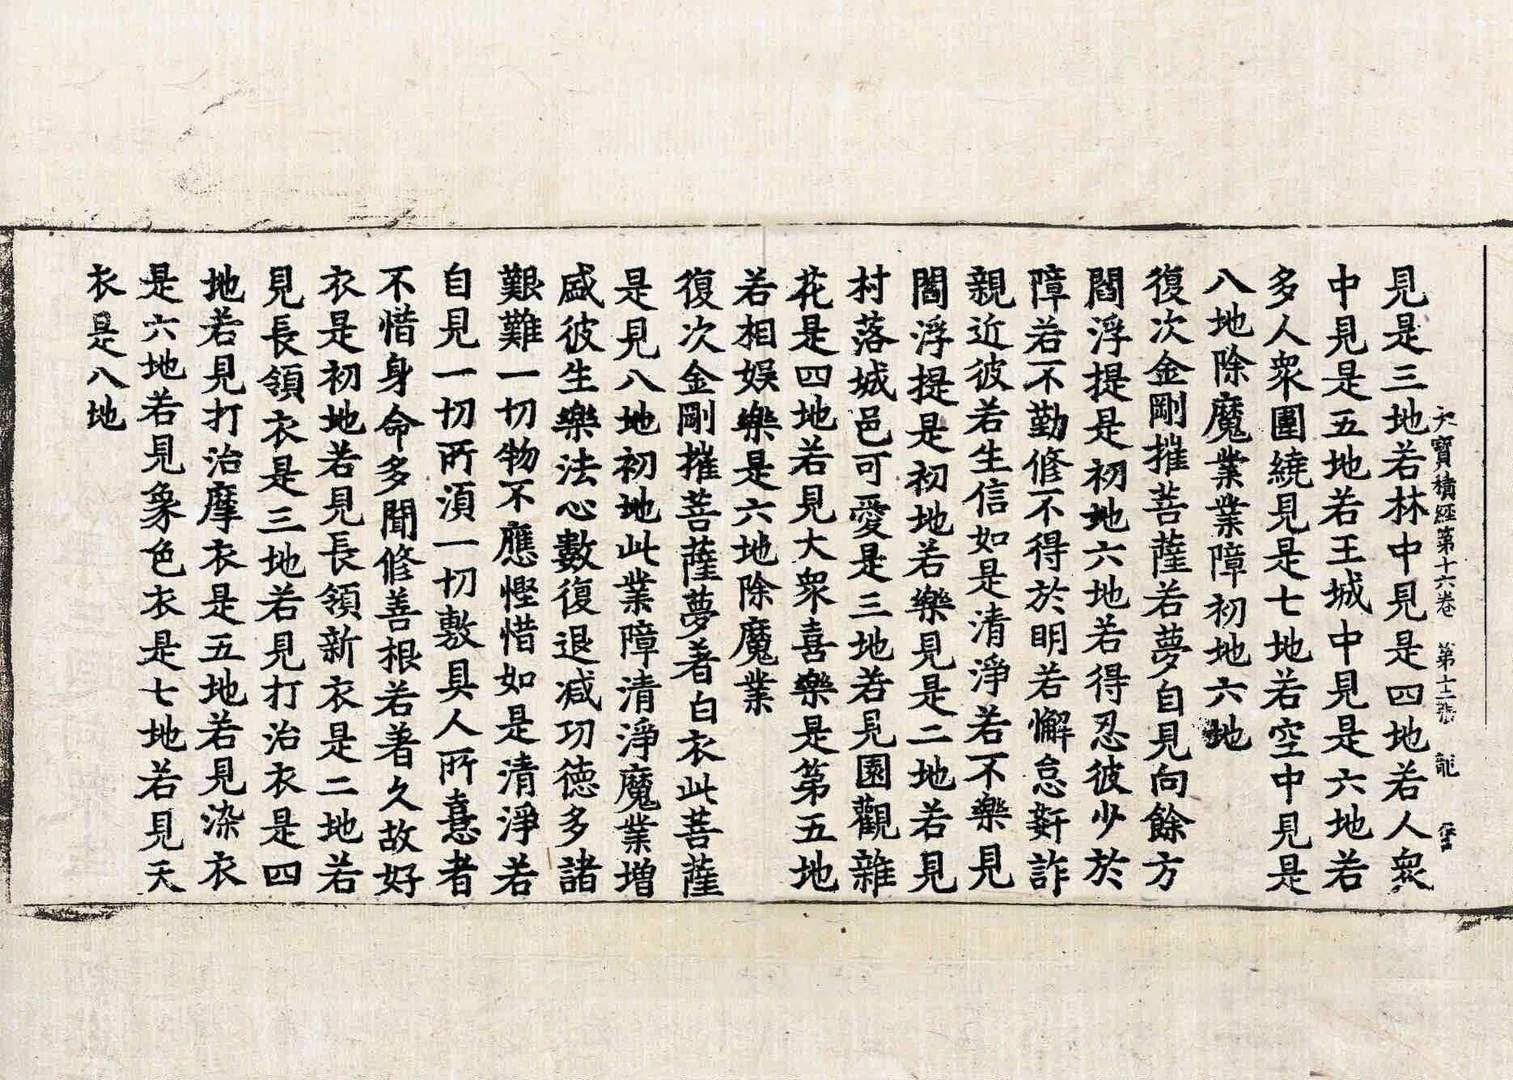 大寶積經第十六卷　第十二張　龍
見是三地若林中見是四地若人衆
中見是五地若王城中見是六地若
多人衆圍繞見是七地若空中見是
八地除魔業業障初地六地
復次金剛摧菩薩若夢自見向餘方
閻浮提是初地六地若得忍彼少於
障若不勤修不得於明若懈怠姧詐
親近彼若生信如是清淨若不樂見
閻浮提是初地若樂見是二地若見
村落城邑可愛是三地若見園觀雜
花是四地若見大衆喜樂是第五地
若相娛樂是六地除魔業
復次金剛摧菩薩夢著白衣此菩薩
是見八地初地此業障清淨魔業增
盛彼生樂法心數復退减功德多諸
艱難一切物不應慳惜如是清淨若
自見一切所湏一切敷具人所憙者
不惜身命多聞修善根若著久故好
衣是初地若見長領新衣是二地若
見長領衣是三地若見打治衣是四
地若見打治摩衣是五地若見染衣
是六地若見象色衣是七地若見天
衣是八地